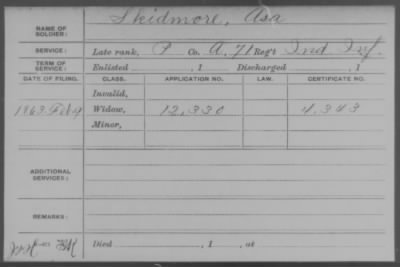 NAME OF SOLDIER: Skidmore, Asa
SERVICE: Late rank, P Co. A, 71 Reg't Ind Inf.
TERM OF SERVICE: Enlisted , 1 Discharged , 1
DATE OF FILING. CLASS. APPLICATION NO. LAW. CERTIFICATE NO.
Invalid,
1863. Feb 9 Widow, 12,330 4,343
Minor,
ADDITIONAL SERVICES:
REMARKS:
Died , 1 , at